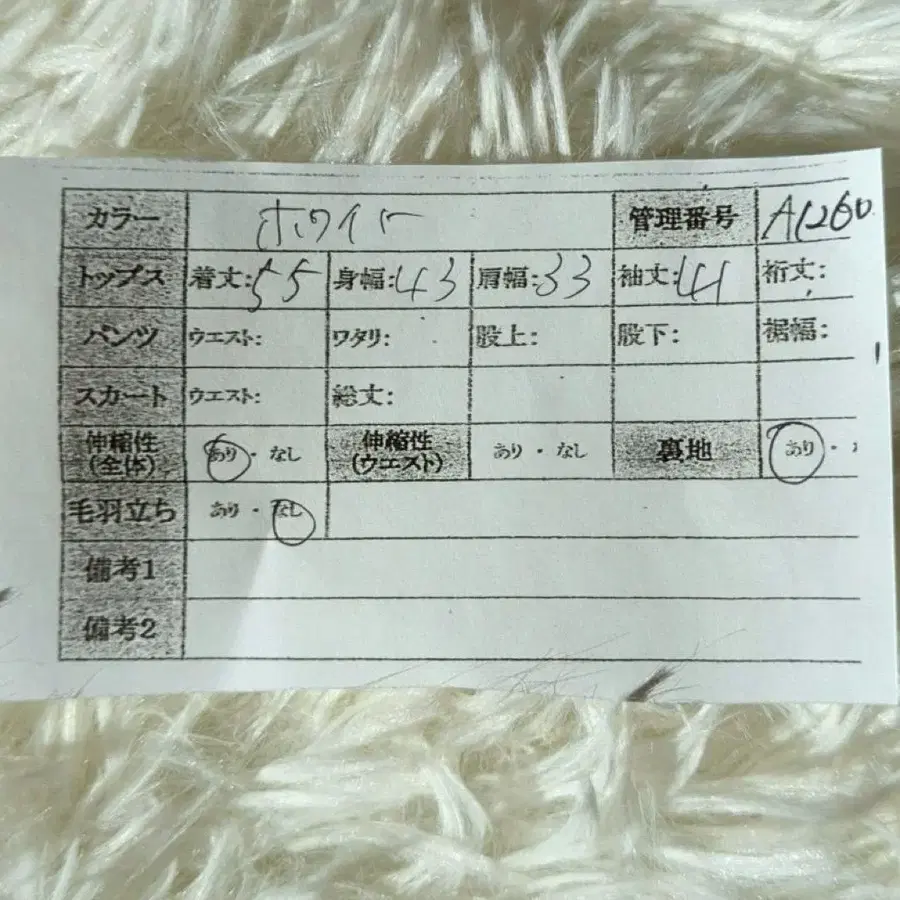 カラー ホワイト 管理番号 A1260
トップス 着丈:55 身幅:43 肩幅:33 袖丈:41 裄丈:
パンツ ウエスト: ワタリ: 股上: 股下: 裾幅:
スカート ウエスト: 総丈:
伸縮性(全体) あり・なし 伸縮性(ウエスト) あり・なし 裏地 あり・
毛羽立ち あり・なし
備考1
備考2